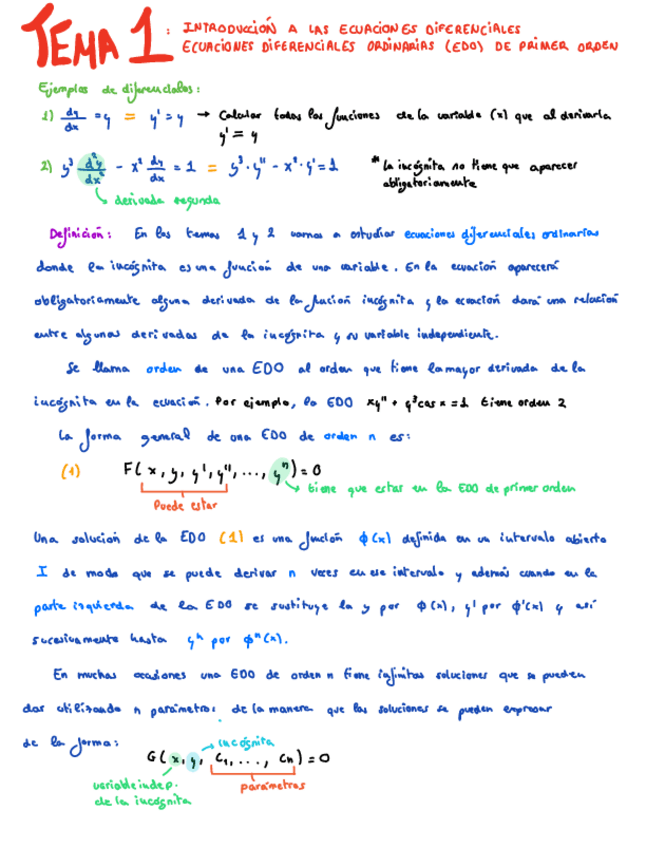 TEMA 1: INTRODUCCIÓN A LAS ECUACIONES DIFERENCIALES
ECUACIONES DIFERENCIALES ORDINARIAS (EDO) DE PRIMER ORDEN
Ejemplos de diferenciales:
1) dy/dx = y = y' = y → Calcular todas las funciones de la variable (x) que al derivarla
y' = y
2) y³ d²y/dx² - x² dy/dx = 1 = y³·y'' - x²·y' = 1
* La incógnita no tiene que aparecer
obligatoriamente
derivada segunda
Definición: En los temas 1 y 2 vamos a estudiar ecuaciones diferenciales ordinarias
donde la incógnita es una función de una variable. En la ecuación aparecerá
obligatoriamente alguna derivada de la función incógnita y la ecuación dará una relación
entre algunas derivadas de la incógnita y su variable independiente.
Se llama orden de una EDO al orden que tiene la mayor derivada de la
incógnita en la ecuación. Por ejemplo, la EDO xy'' + y³cos x = 1 tiene orden 2
La forma general de una EDO de orden n es:
(1) F(x, y, y', y'', ..., yⁿ) = 0
tiene que estar en la EDO de primer orden
Puede estar
Una solución de la EDO (1) es una función ϕ(x) definida en un intervalo abierto
I de modo que se puede derivar n veces en ese intervalo y además cuando en la
parte izquierda de la EDO se sustituye la y por ϕ(x), y' por ϕ'(x) y así
sucesivamente hasta yⁿ por ϕⁿ(x).
En muchas ocasiones una EDO de orden n tiene infinitas soluciones que se pueden
dar utilizando n parámetros de la manera que las soluciones se pueden expresar
de la forma:
incógnita
G(x, y, C₁, ..., Cn) = 0
variable indep.
de la incógnita
parámetros